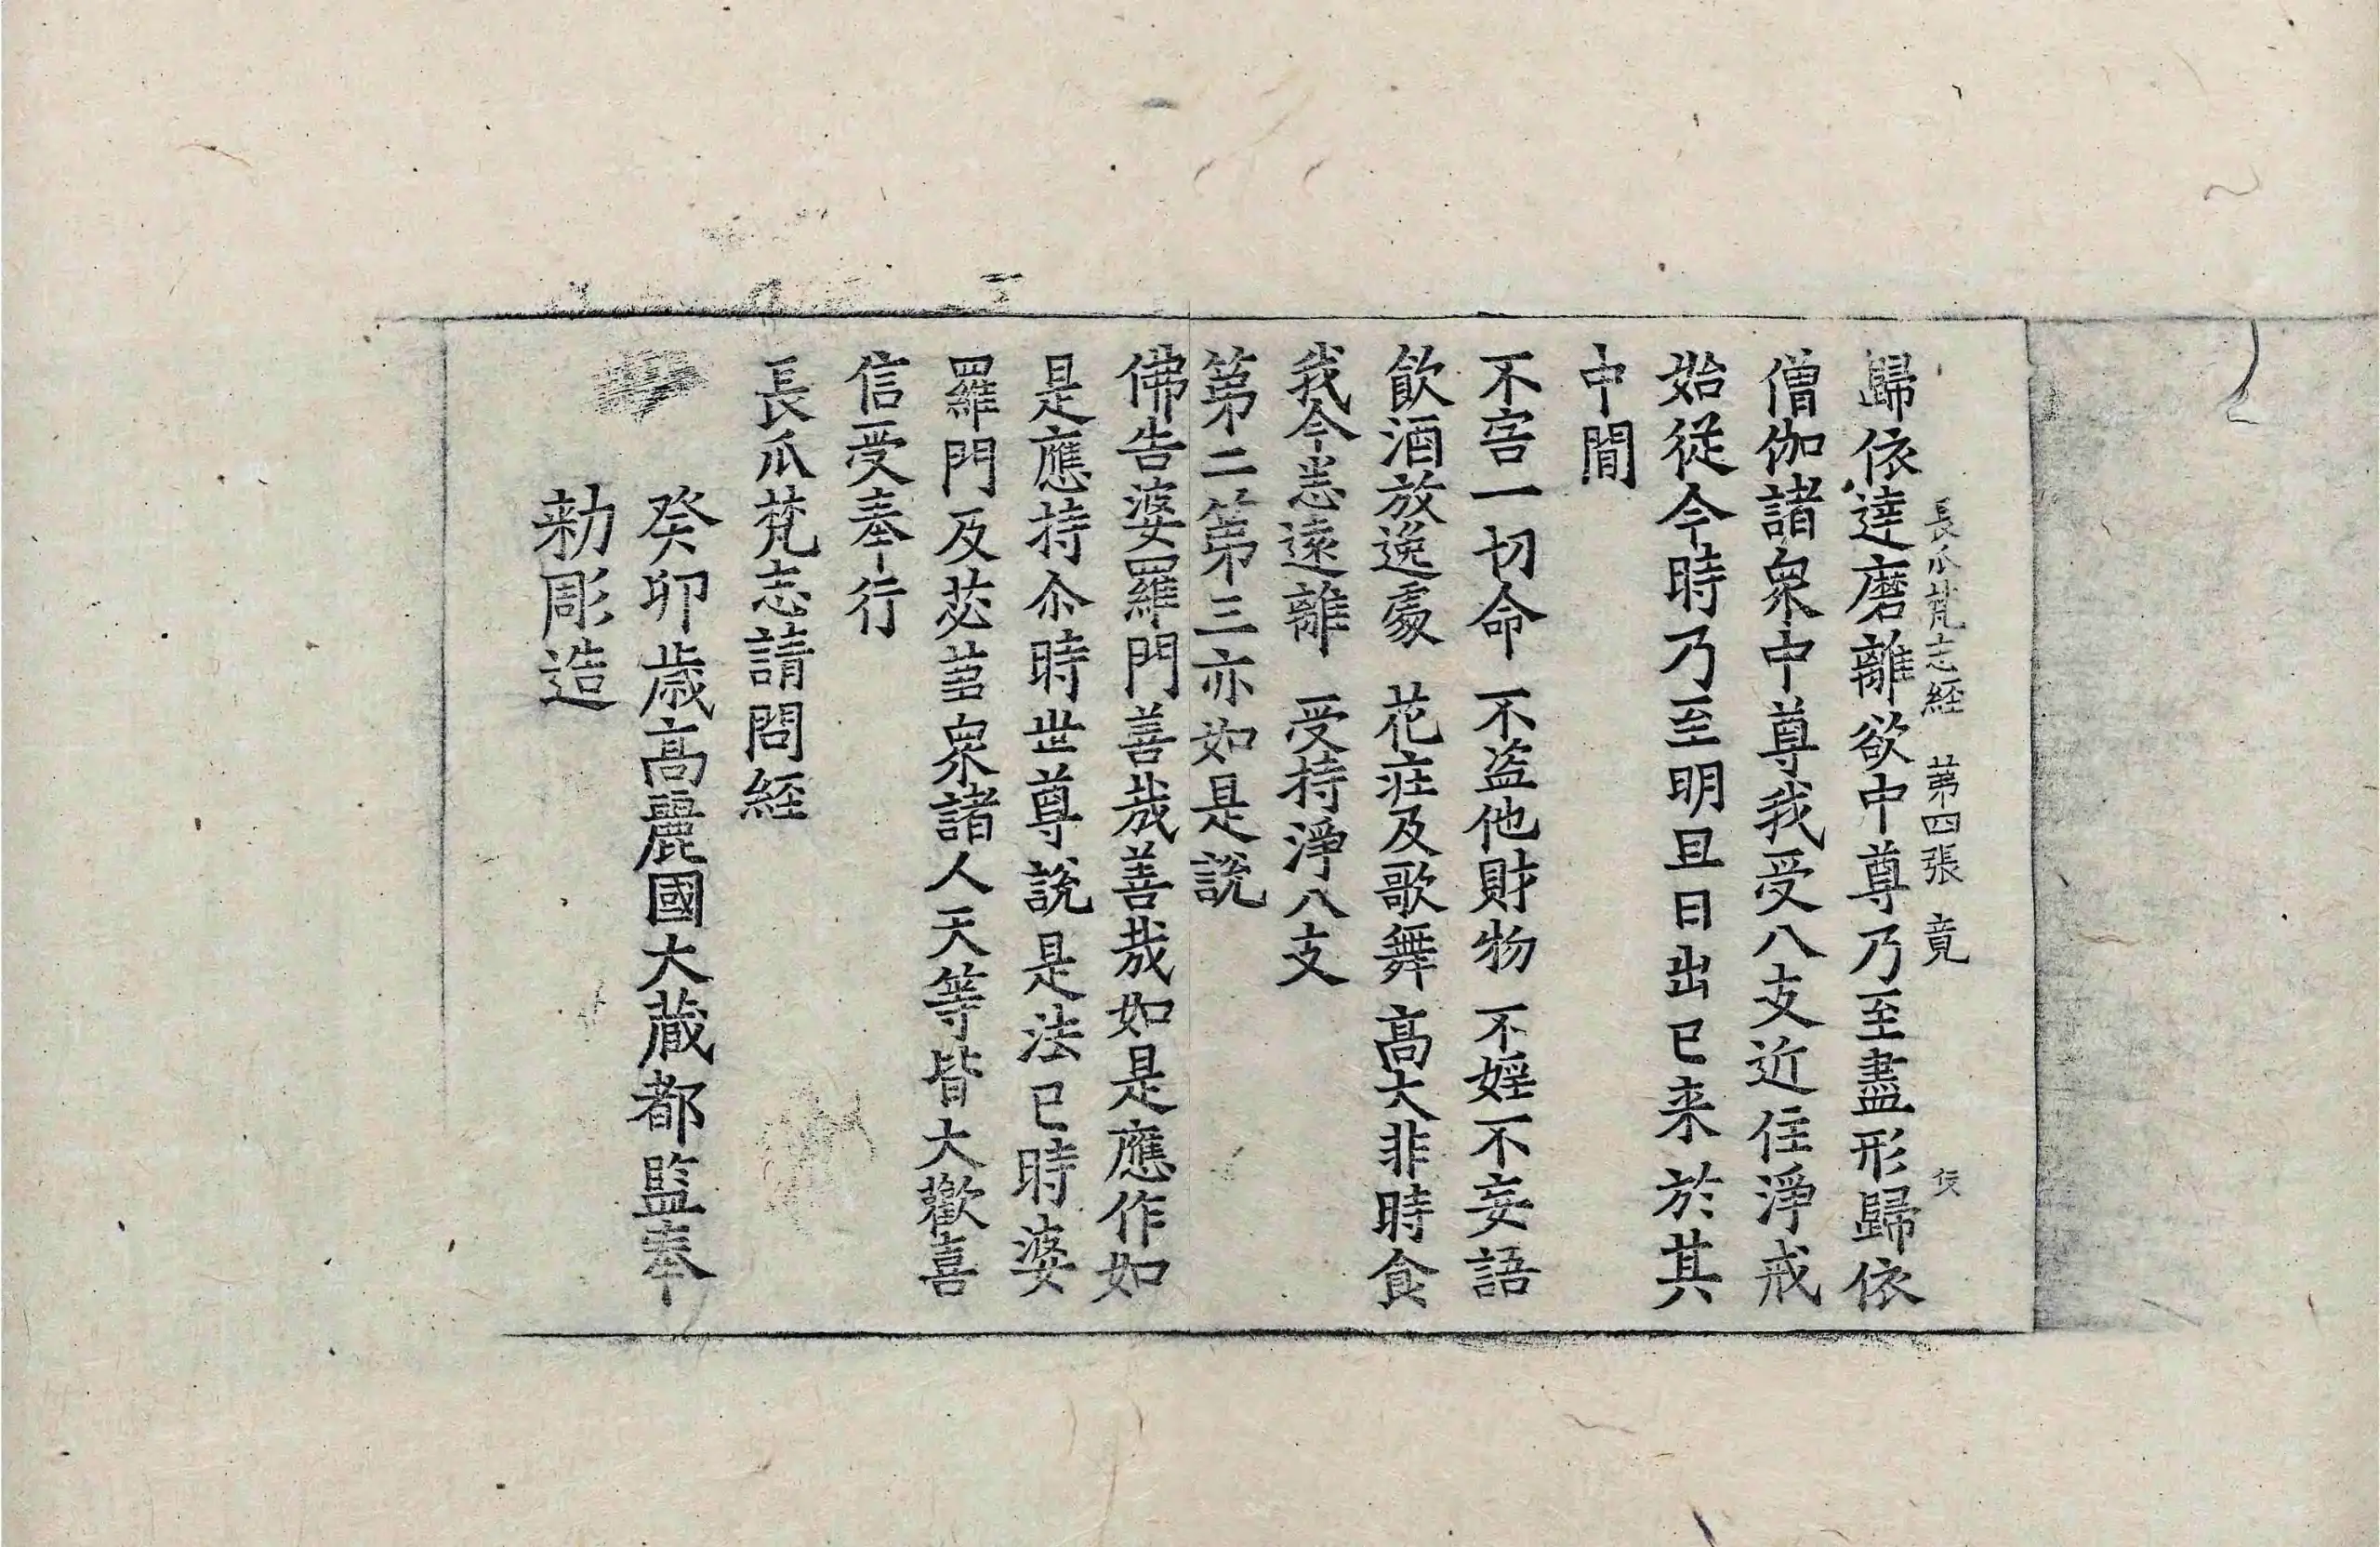 長爪梵志経 第四張 竟
歸依達磨離欲中尊乃至盡形歸依
僧伽諸衆中尊我受八支近住淨戒
始從今時乃至明旦日出已来於其
中間
不害一切命 不盗他財物 不婬不妄語
飲酒放逸處 花莊及歌舞 高大非時食
我今恙遠離 受持淨八支
第二第三亦如是說
佛告婆羅門善哉善哉如是應作如
是應持尒時世尊說是法已時婆
羅門及苾蒭衆諸人天等皆大歡喜
信受奉行
長爪梵志請問経
癸卯歲高麗國大藏都監奉
勅彫造